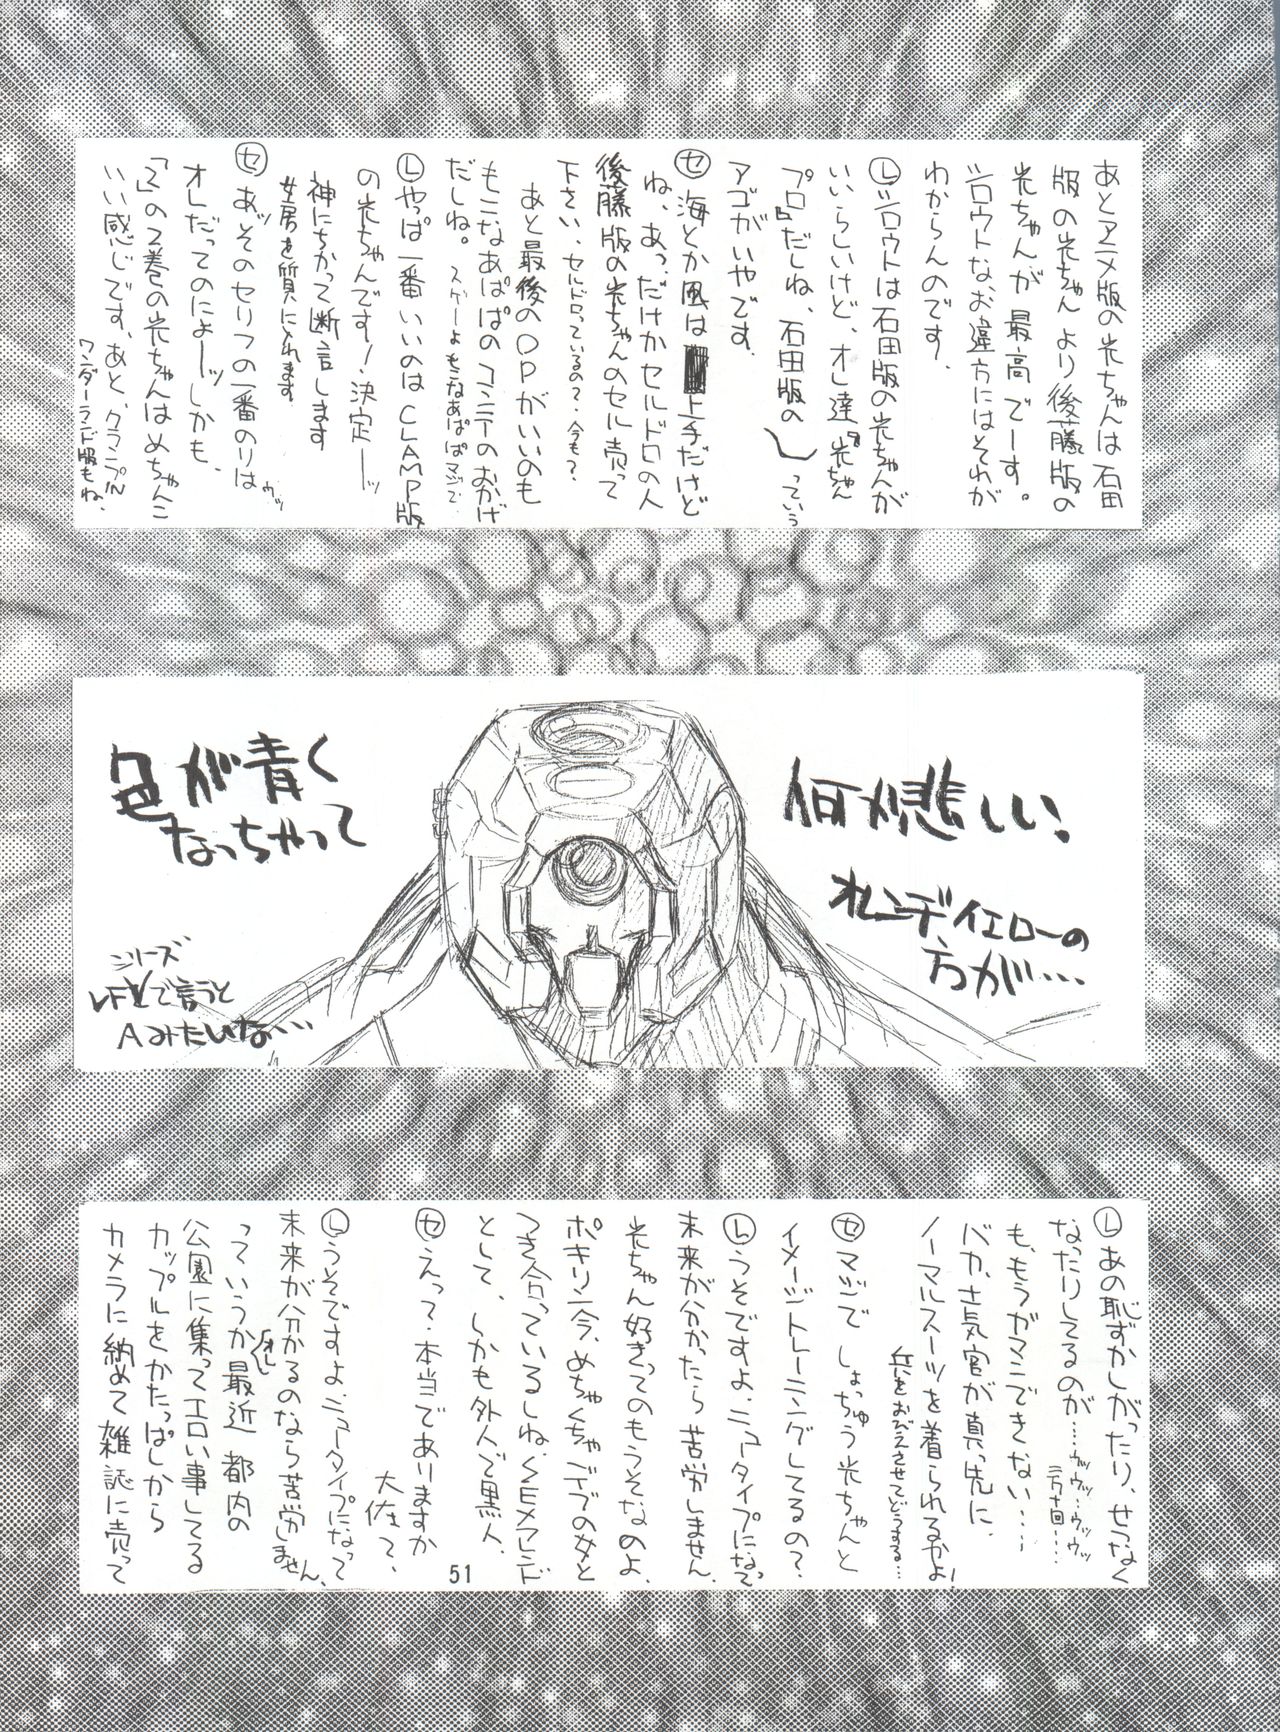 あとアニメ版の光ちゃんは石田
版の光ちゃんより後藤版の
光ちゃんが最高でーす。
シロウトなお違方にはそれが
わからんのです。
Ⓛシロウトは石田版の光ちゃんが
いいらしいけど、オレ達『光ちゃん
プロ』だしね、石田版の
っていう
アゴがいやです。
セ 海とか風は 上手だけど
ね、あっ、だけかセルドロの人
後藤版の光ちゃんのセル売って
下さい、セルドロっているの?、今も?
あと最後のOPがいいのも
もこなあぱぱのコンテのおかげ
だしね。スゲーよもこなあぱぱマジで
Ⓛやっぱ一番いいのはCLAMP版
の光ちゃんです!決定ーッ
神にちかって断言します
女房を質に入れます
セ あッそのセリフの一番のりは
ウッ
オレだってのによーッしかも、
「2」の2巻の光ちゃんはめちゃんこ
いい感じです、あと、クランプIN
ワンダーランド版もね、
何か悲しい!
オレンヂイエローの
方が…
色が青く
なっちゃって
シリーズ
で言うと
Aみたいな…
Ⓛあの恥ずかしがったり、せつなく
なったりしてるのが…ウッウッ…ウッウッ
二万十回…
も、もうガマンできない…
バカ、士気官が真っ先に、
ノーマルスーツを着られるかよ!
兵をおびえさせてどうする…
セ マジでしょっちゅう光ちゃんと
イメージトレーニングしてるの?
Ⓛうそですよ、ニュータイプになって
未来が分かったら苦労しません、
光ちゃん好きってのもうそなのよ、
ポキリン今、めちゃくちゃデブの女と
つき合っているしね、SEXフレンド
として、しかも外人で黒人、
セ えって・本当でありますか
大佐て、
Ⓛうそですよ、ニュータイプになって
未来が分かるのなら苦労しません、
っていうか最近都内の
「オレ」
公園に集ってエロい事してる
カップルをかたっぱしから
カメラに納めて雑誌に売って
51